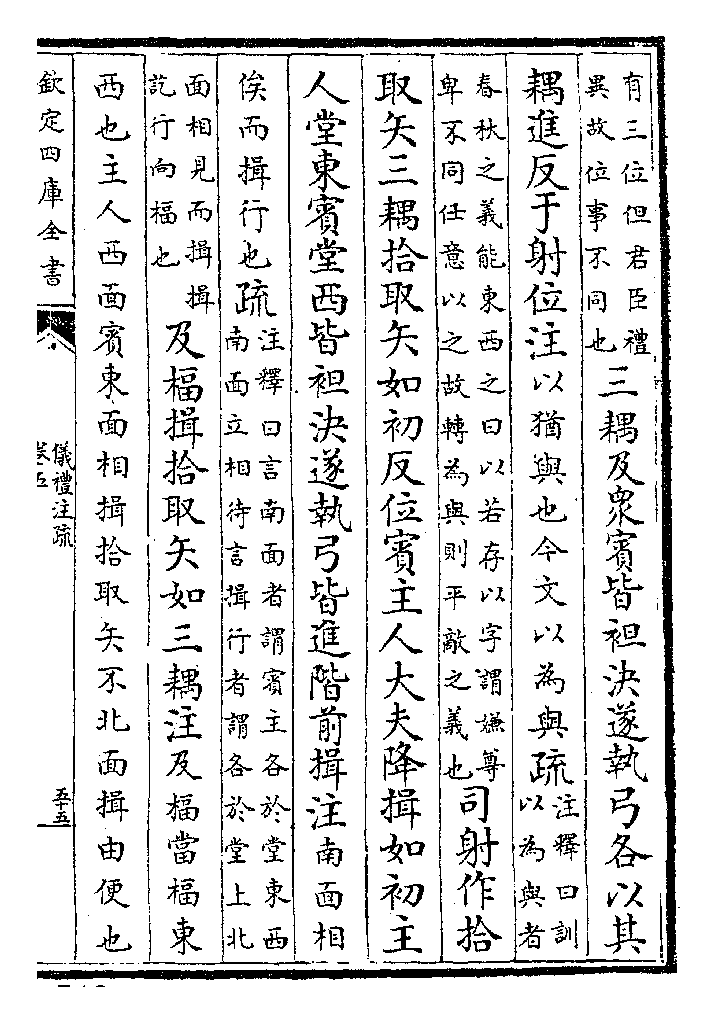 有三位但君臣禮
異故位事不同也
三耦及衆賓皆袒決遂執弓各以其
耦進反于射位注以猶與也今文以為與疏
注釋曰訓
以為與者
春秋之義能東西之曰以若存以字謂嫌尊
卑不同任意以之故轉為與則平敵之義也
司射作拾
取矢三耦拾取矢如初反位賓主人大夫降揖如初主
人堂東賓堂西皆袒決遂執弓皆進階前揖注南面相
俟而揖行也疏
注釋曰言南面者謂賓主各於堂東西
南面立相待言揖行者謂各於堂上北
面相見而揖揖
訖行向楅也
及楅揖拾取矢如三耦注及楅當楅東
西也主人西面賓東面相揖拾取矢不北面揖由便也
欽定四庫全書
儀禮注疏
卷五
五十五